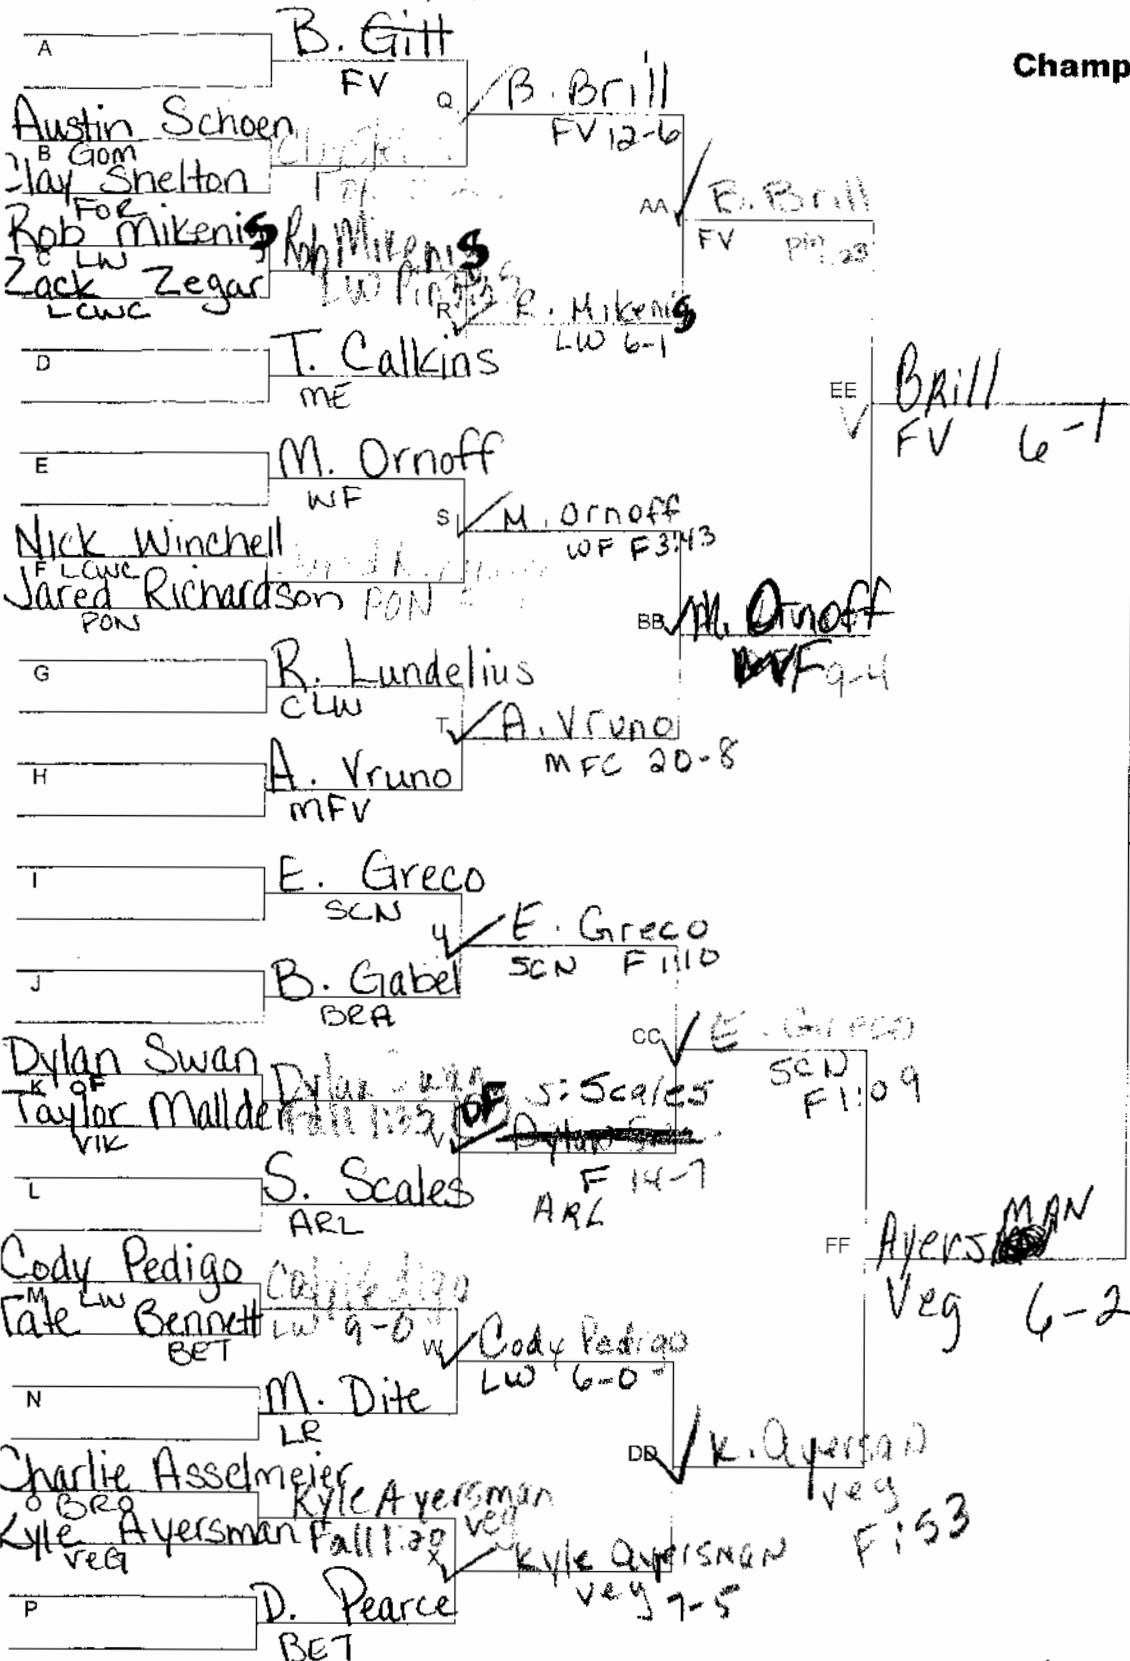 A
B. Gitt
FV
Champ
Q
B. Brill
FV 12-6
Austin Schoen
B GOM
Clay Shelton
FOR
AA
B. Brill
FV pin :23
Rob Mikenis
C LW
Zack Zegar
LCWC
Rob Mikenis
LW Pin
R
R. Mikenis
LW 6-1
D
T. Calkins
ME
EE
Brill
FV 6-1
E
M. Ornoff
WF
S
M. Ornoff
WF F3:43
Nick Winchell
F LCWC
Jared Richardson
PON
PON
BB
M. Ornoff
WF 9-4
G
R. Lundelius
CLW
T
A. Vruno
MFC 20-8
H
A. Vruno
MFV
I
E. Greco
SCN
U
E. Greco
SCN F 1:10
J
B. Gabel
BRA
CC
E. Greco
SCN
F1:09
Dylan Swan
K OF
Taylor Mallder
VIK
Dylan Swan
Fall 1:35 OF
V
S. Scales
F 14-7
ARL
L
S. Scales
ARL
FF
Ayersman
Veg 6-2
Cody Pedigo
M LW
Tate Bennett
BET
Cody Pedigo
LW 9-0
W
Cody Pedigo
LW 6-0
N
M. Dite
LR
DD
K. Ayersman
veg
F :53
Charlie Asselmeier
O BRO
Kyle Ayersman
VEG
Kyle Ayersman
veg
Fall 1:20
X
Kyle Ayersman
veg 7-5
P
D. Pearce
BET